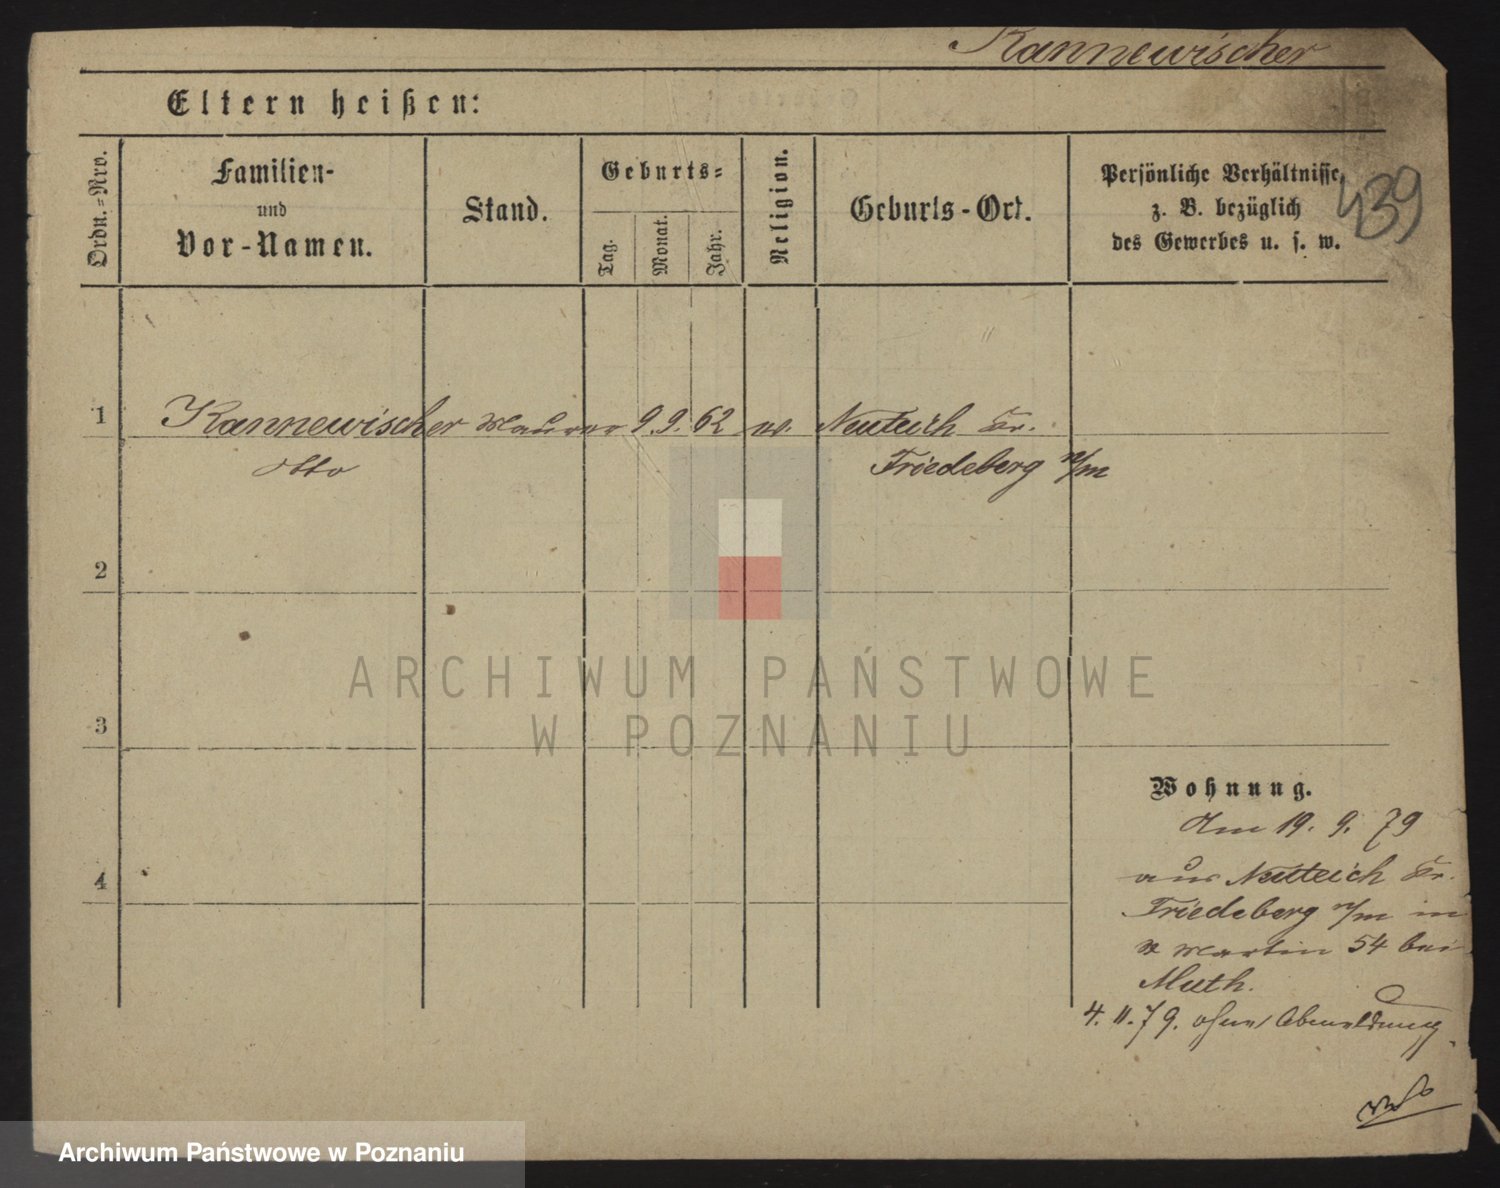 Kannewischer
Eltern heißen:
439
Ordn.-Nro.
Familien-
und
Vor-Namen.
Stand.
Geburts-
Tag.
Monat.
Jahr.
Religion.
Geburts-Ort.
Persönliche Verhältnisse,
z. B. bezüglich
des Gewerbes u. s. w.
1 Kannewischer Maurer 9. 9. 62 ev. Neuteich Kr.
Otto Friedeberg n/m
2
3
4
Wohnung.
Am 19. 9. 79
aus Neuteich Kr.
Friedeberg n/m in
St Martin 54 bei
Muth.
4. 11. 79. ohne Abmeldung
ARCHIWUM PAŃSTWOWE
W POZNANIU
Archiwum Państwowe w Poznaniu